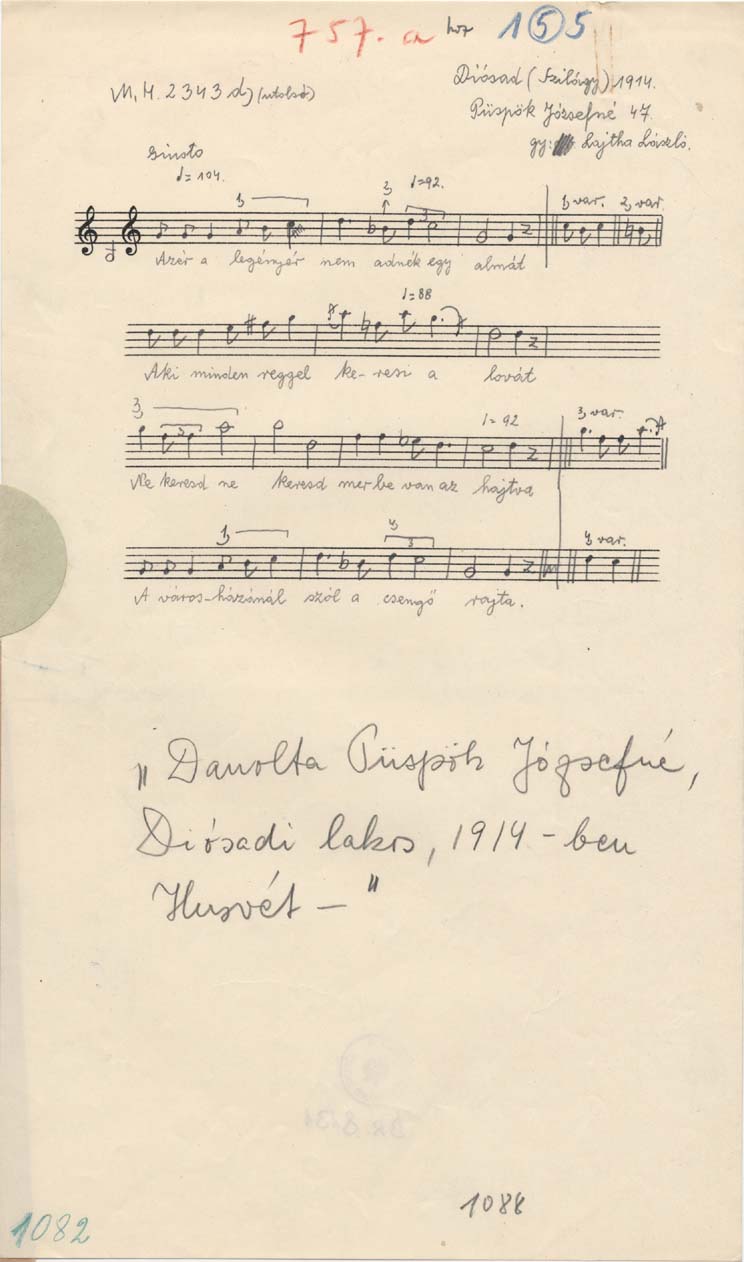 757. a hoz 1 5 5
M.H. 2343 d) (utolsó)
Diósad (Szilágy) 1914.
Püspök Józsefné 47.
gy: Lajtha László.
Giusto
♩= 104.
1, 3, ♩=92. 3 1, var. 2, var.
Azér a legényér nem adnék egy almát
♩=88
Aki minden reggel ke-resi a lovát
3, 3 ♩=92 3, var.
Ne keresd ne keresd mer be van az hajtva
1, 4, 3 4, var.
A város-házánál szól a csengő rajta.
„Danolta Püspök Józsefné,
Diósadi lakos, 1914-ben
Husvét – "
1088
1082